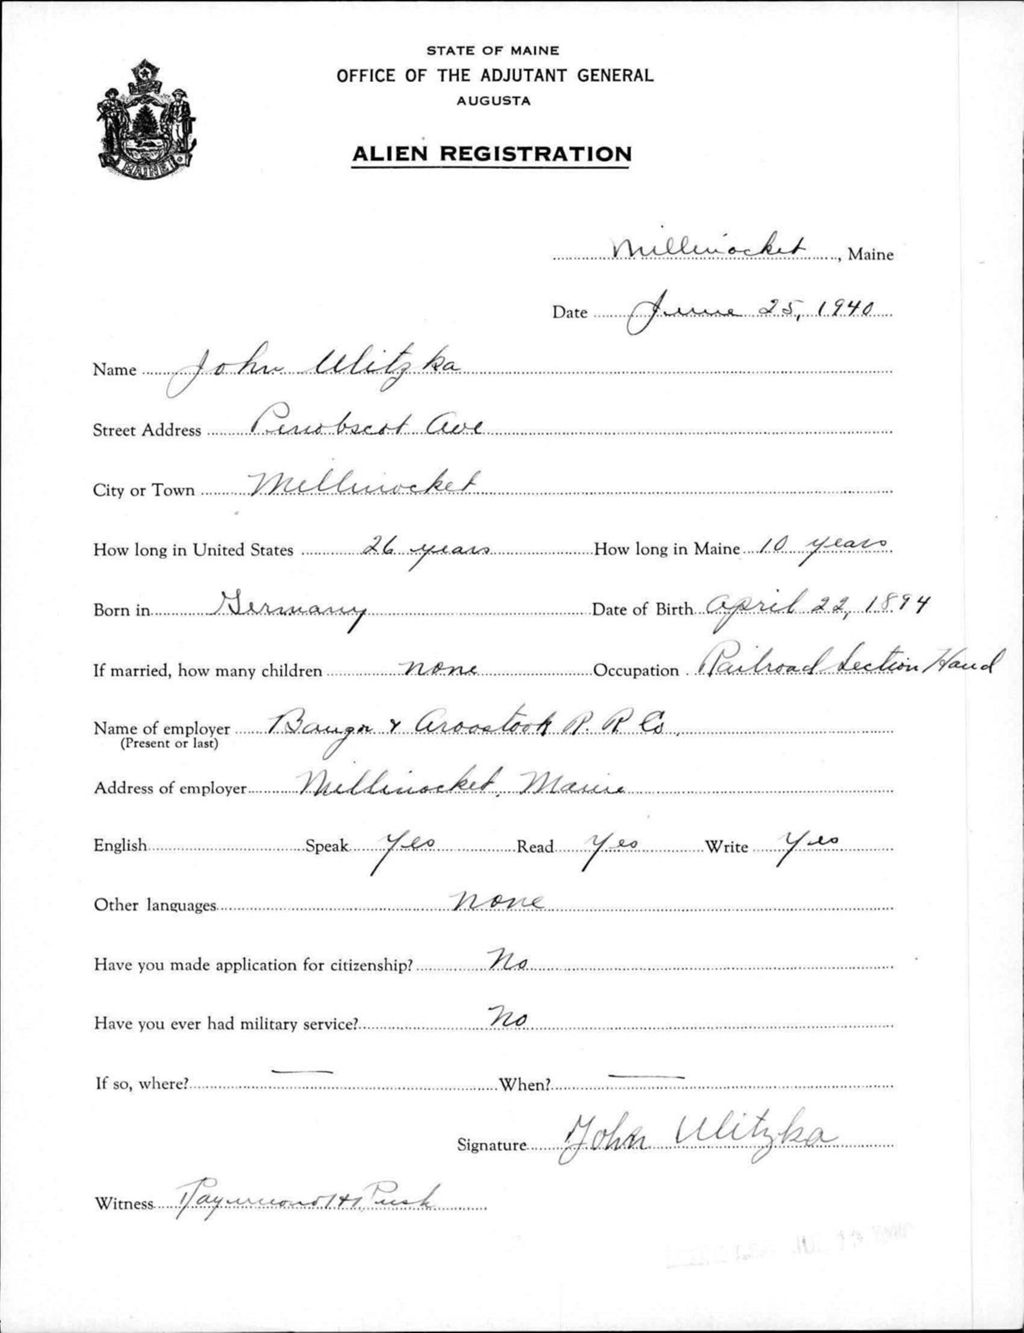 STATE OF MAINE
OFFICE OF THE ADJUTANT GENERAL
AUGUSTA
ALIEN REGISTRATION
MAINE
Millinocket, Maine
Date June 25, 1940
Name John Ulitzka
Street Address Penobscot Ave
City or Town Millinocket
How long in United States 26 years How long in Maine 10 years
Born in Germany Date of Birth April 22, 1894
If married, how many children none Occupation Railroad Section Hand
Name of employer Bangor & Aroostook R. R Co.
(Present or last)
Address of employer Millinocket, Maine
English Speak Yes Read Yes Write Yes
Other languages none
Have you made application for citizenship? No
Have you ever had military service? No
If so, where? — When? —
Signature John Ulitzka
Witness Raymond H.